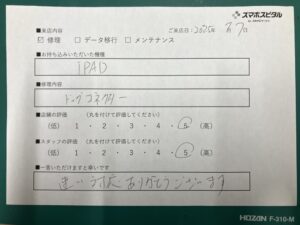 スマホスピタル
■来店内容
ご来店日：2025年 7/7日
☑ 修理 □ データ移行 □ メンテナンス
■お持ちみいただいた機種
IPAD
■修理内容
ドックコネクター
■店舗の評価 (丸を付けて評価してください)
(低) 1 ・ 2 ・ 3 ・ 4 ・ 5 (高)
■スタッフの評価 (丸を付けて評価してください)
(低) 1 ・ 2 ・ 3 ・ 4 ・ 5 (高)
■一言いただけますと幸いです
速い対応ありがとうございます
HOZAN F-310-M